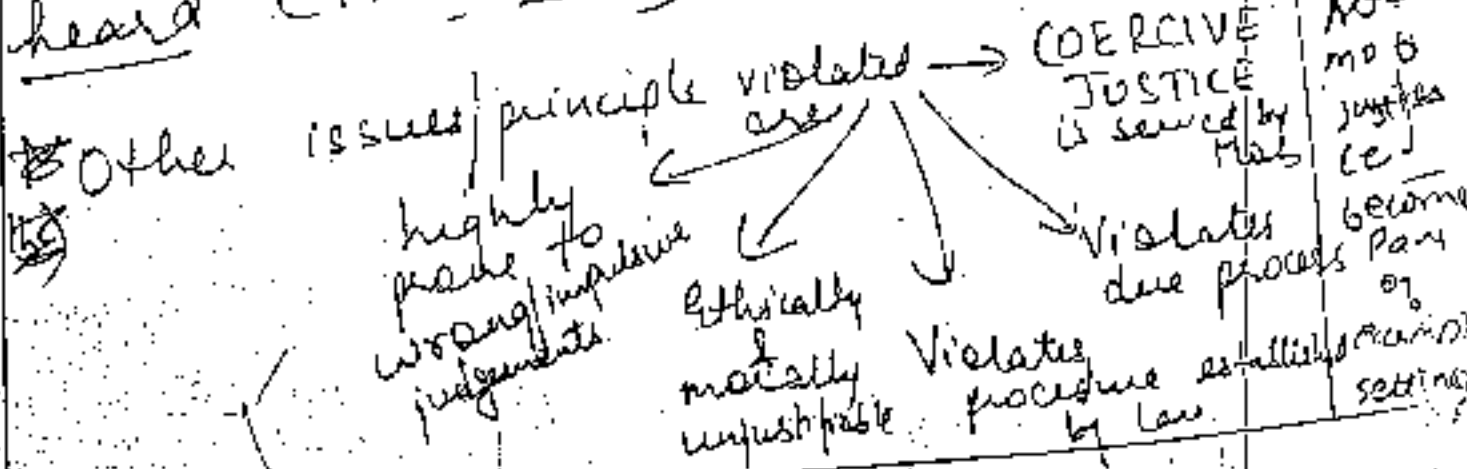 heard
Other issues/principle violated are → COERCIVE
JUSTICE
is served by
Mob
highly
prone to
wrong/impulsive
judgements
Ethically
&
morally
unjustifiable
Violates
procedure established
by Law
Violates
due process
mob
justice
become
setting